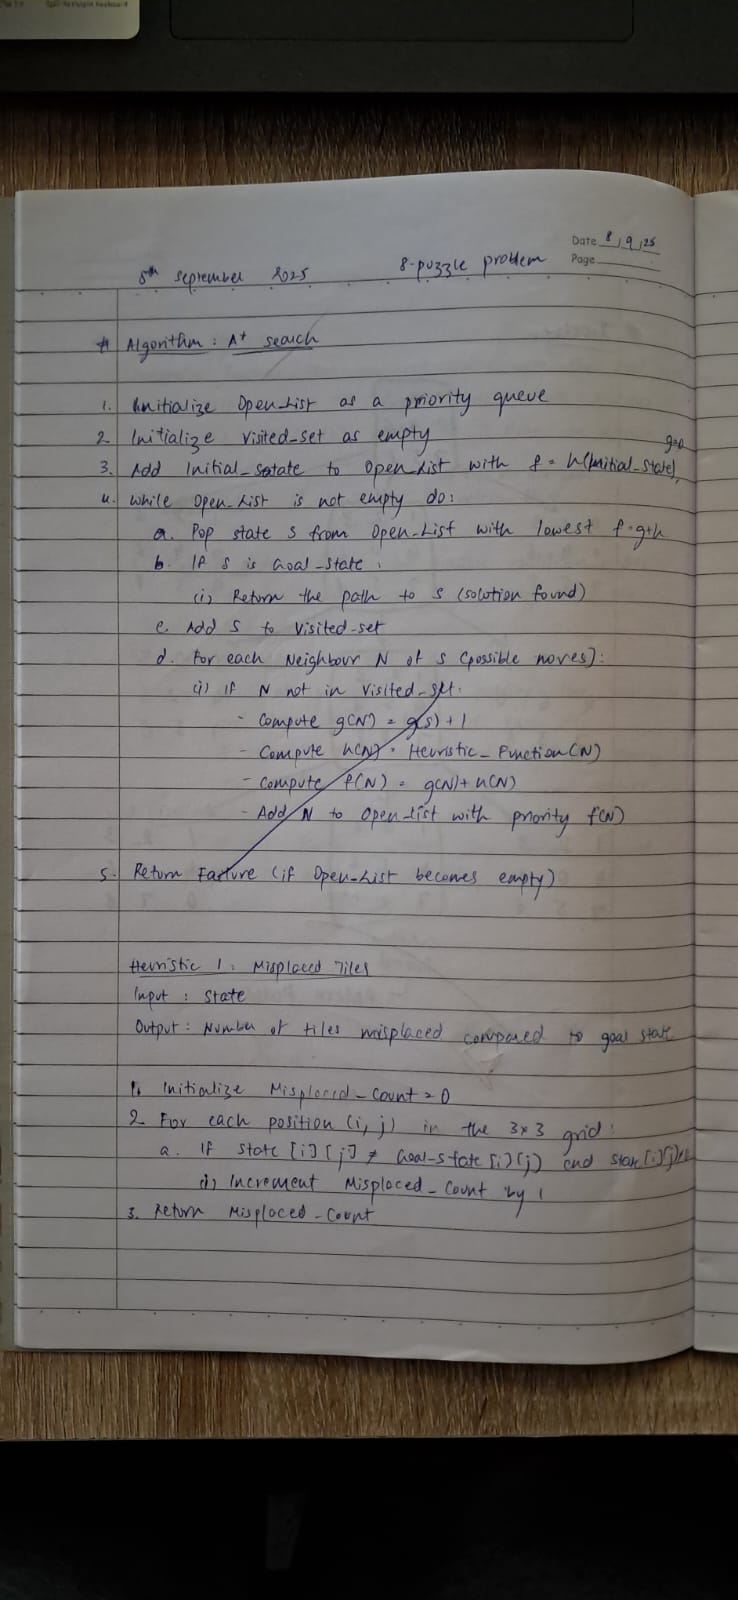 Date 8/9/25
Page
8th September 2025 8-puzzle problem
# Algorithm : A* search
1. Initialize Open-List as a priority queue
2. Initialize Visited_set as empty
g=0
3. Add Initial_Satate to Open-List with f = h(Initial_State),
4. while Open-List is not empty do:
a. Pop state S from Open-List with lowest f=g+h
b. If S is Goal-State :
(i) Return the path to S (solution found)
c. Add S to Visited-set
d. For each Neighbour N of S (possible moves):
(i) if N not in Visited-set.
- Compute g(N) = g(S) + 1
- Compute h(N) = Heuristic_Function(N)
- Compute f(N) = g(N) + h(N)
- Add N to Open-List with priority f(N)
5. Return Failure (if Open-List becomes empty)
Heuristic 1 : Misplaced Tiles
Input : State
Output : Number of tiles misplaced compared to goal state
1. Initialize Misplaced-Count = 0
2. For each position (i, j) in the 3x3 grid:
a. If State[i][j] ≠ Goal-State[i][j] and State[i][j]
(i) Increment Misplaced-Count by 1
3. Return Misplaced-Count